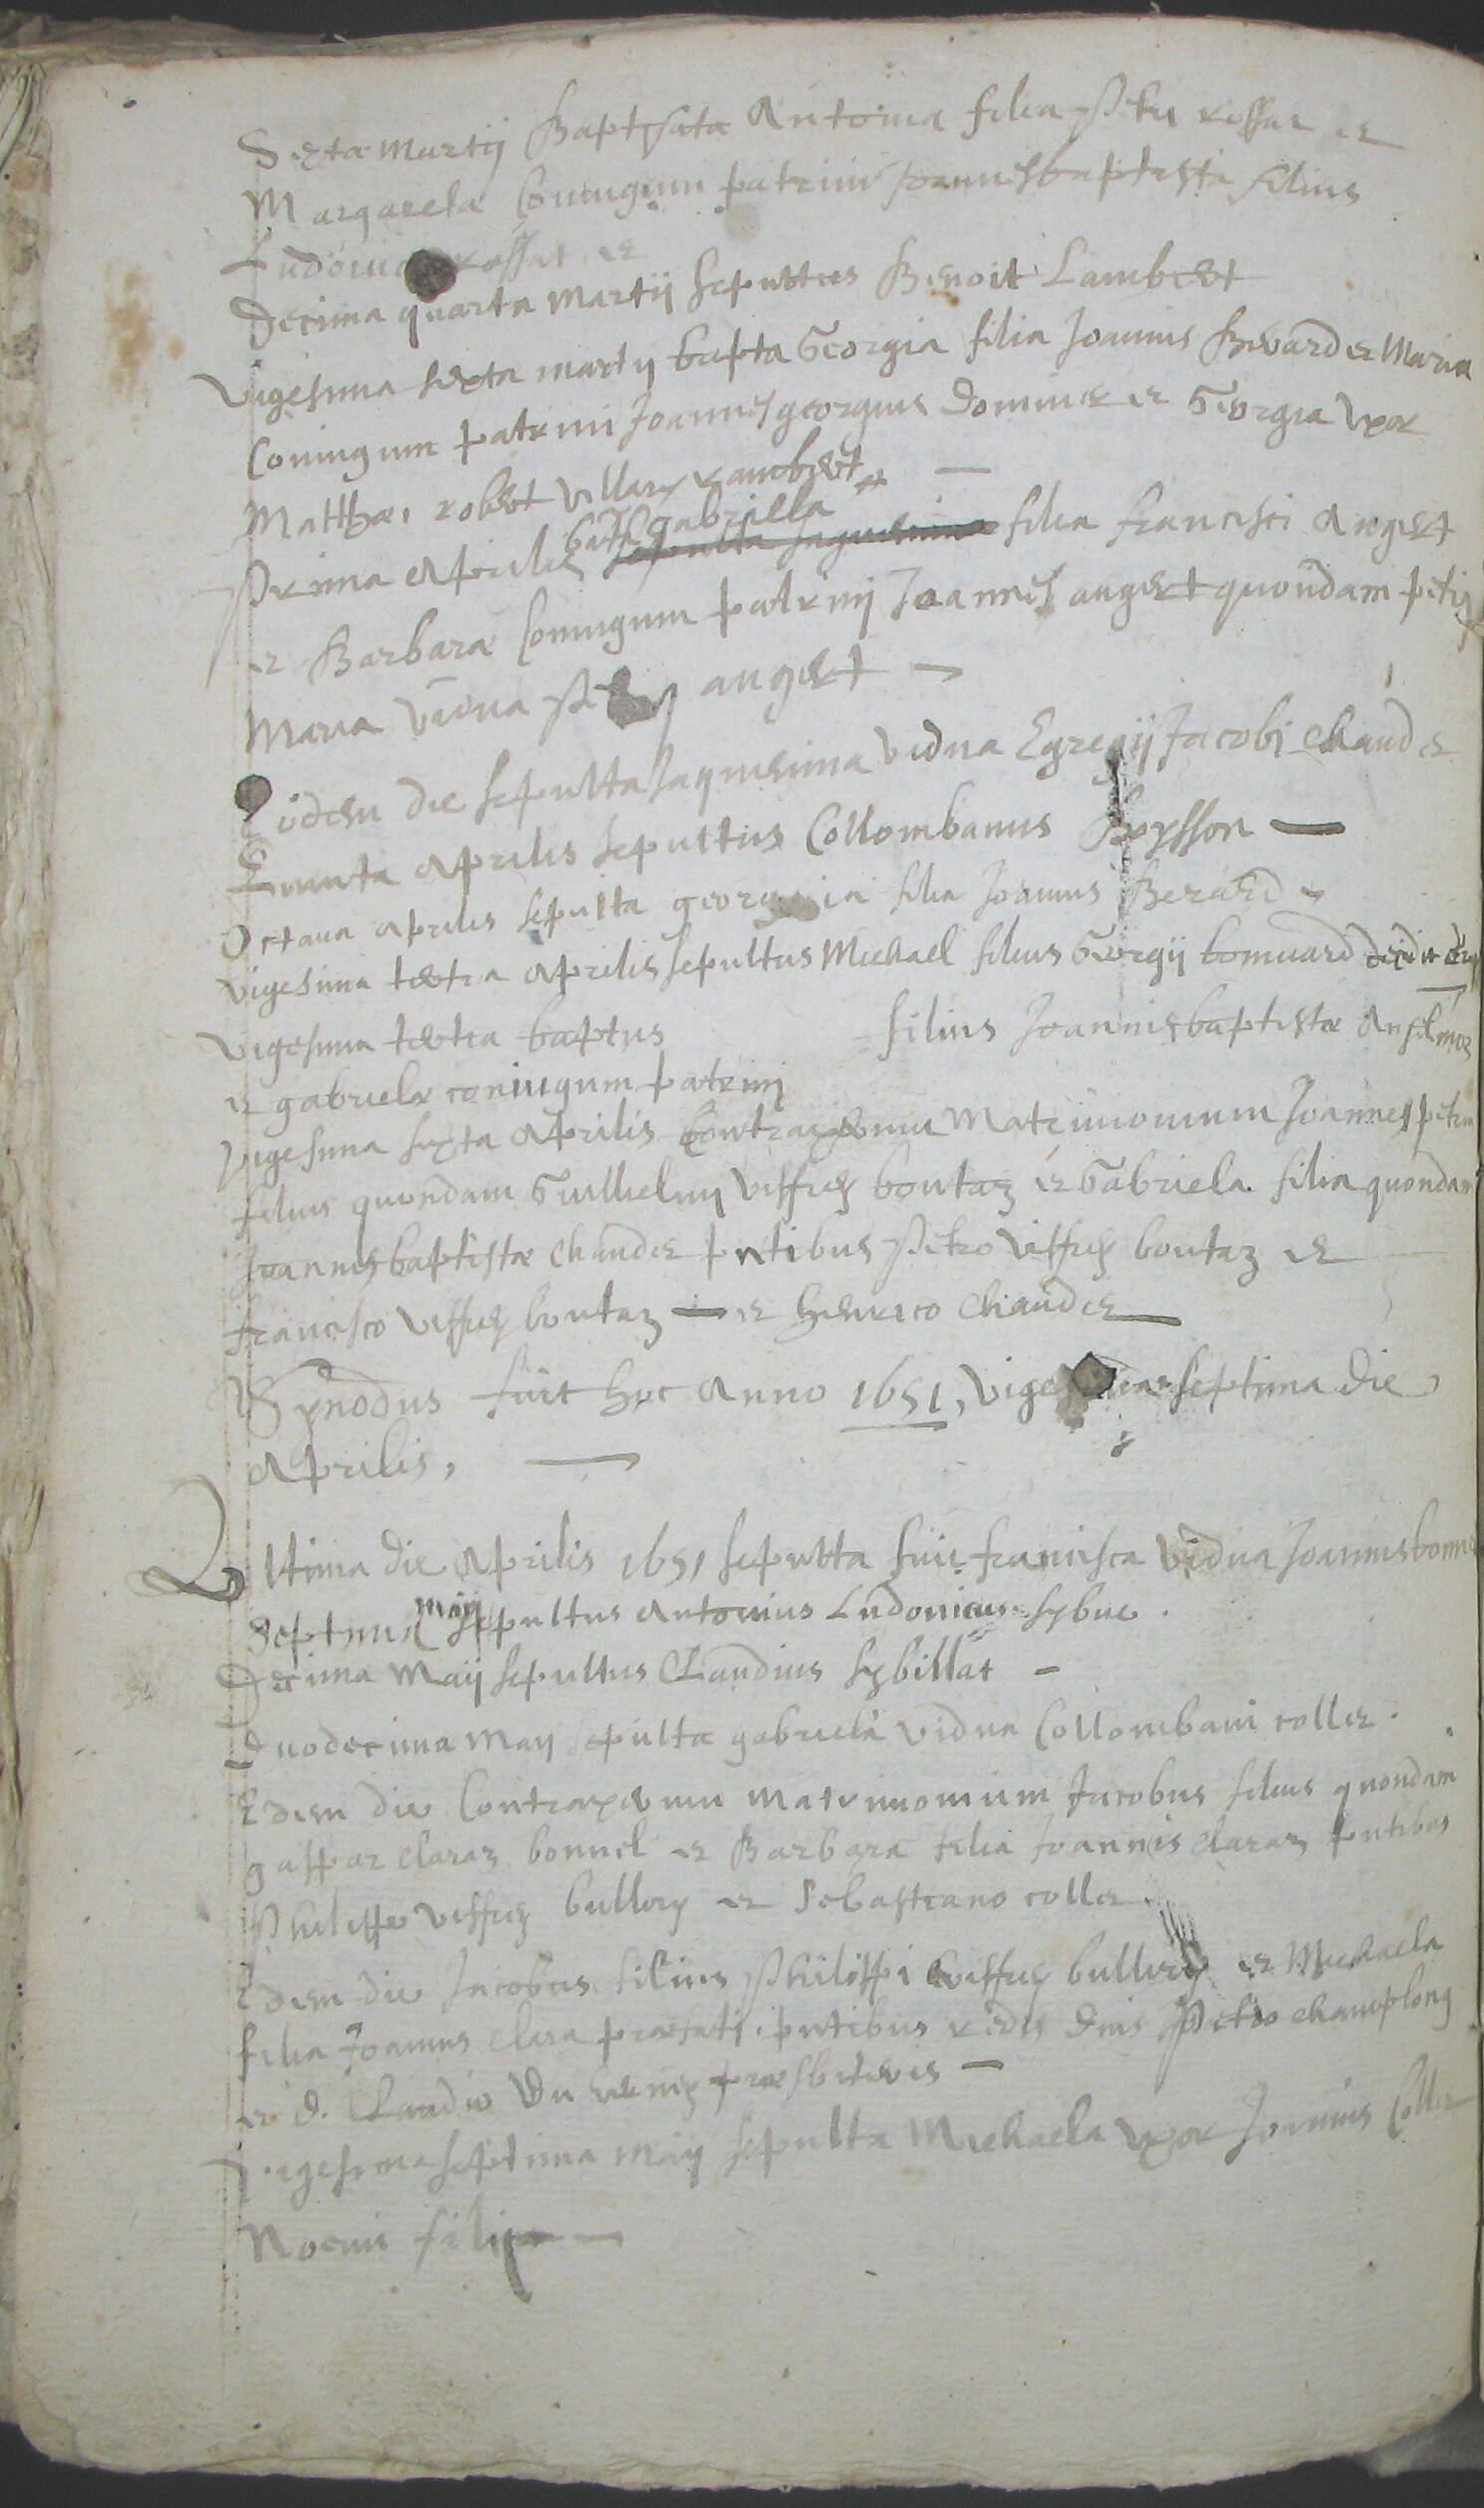 Sexta Martij Baptisata Antonia filia Petri rossat et
Margareta Coniugum patrini Joannesbaptista filius
Ludouici rossat et
Decima quarta Martij sepultus Benoit Lambert
Vigesima sexta martij bapta Georgia filia Joannis Berard et Maria
Coniugum patrini Joannesgeorgius Dominic et Georgia Vxor
Matthæi robert Villary rambert
Prima Aprilis bapta gabriella sepulta Jaquemina filia francisci Augert
et Barbara Coniugum patrinij Joannes augert quondam petrij
Maria vidua Petrij augert
Eodem die sepulta Jaquemina vidua Egregij Jacobi Chaudet
Quinta Aprilis sepultus Collombanus
Octaua Aprilis sepulta georgia filia Joannis Berard
Vigesima tertia Aprilis sepultus Michael filius Georgij bonuard
Vigesima tertia baptus filius Joannisbaptistæ Anselmoz
et gabrielæ coniugum patrinij
Vigesima sexta Aprilis Contraxerunt Matrimonium Joannespetrus
filius quondam Guillielmij Viffrey boutaz et Gabriela filia quondam
Joannisbaptistæ Chaudet pntibus Petro Viffrey boutaz et
francisco Viffrey boutaz et henrico Chaudet
Synodus fuit hoc Anno 1651, Vigesima septima die
Aprilis,
Vltima die Aprilis 1651 sepulta fuit francisca vidua Joannis
Septima maij sepultus Antonius Ludouicus Sybue.
Decima Maij sepultus Claudius Sybillat
Duodecima Maij sepulta gabriela vidua Collombani collet.
Edem die Contraxerunt matrimonium Jacobus filius quondam
gaspar claraz bonnel et Barbara filia Joannis claraz pntibus
Philippo Viffrey bullery et Sebastiano collet
Edem die Jacobus filius Philippi Viffrey bullery et Michaela
filia Joannis clara præfati pntibus rdis dnis Petro champlong
et d. Claudio Du verney præsbiteris
Vigesima septima Maij sepulta Michaela Vxor Joannis Collet
Noemi filij